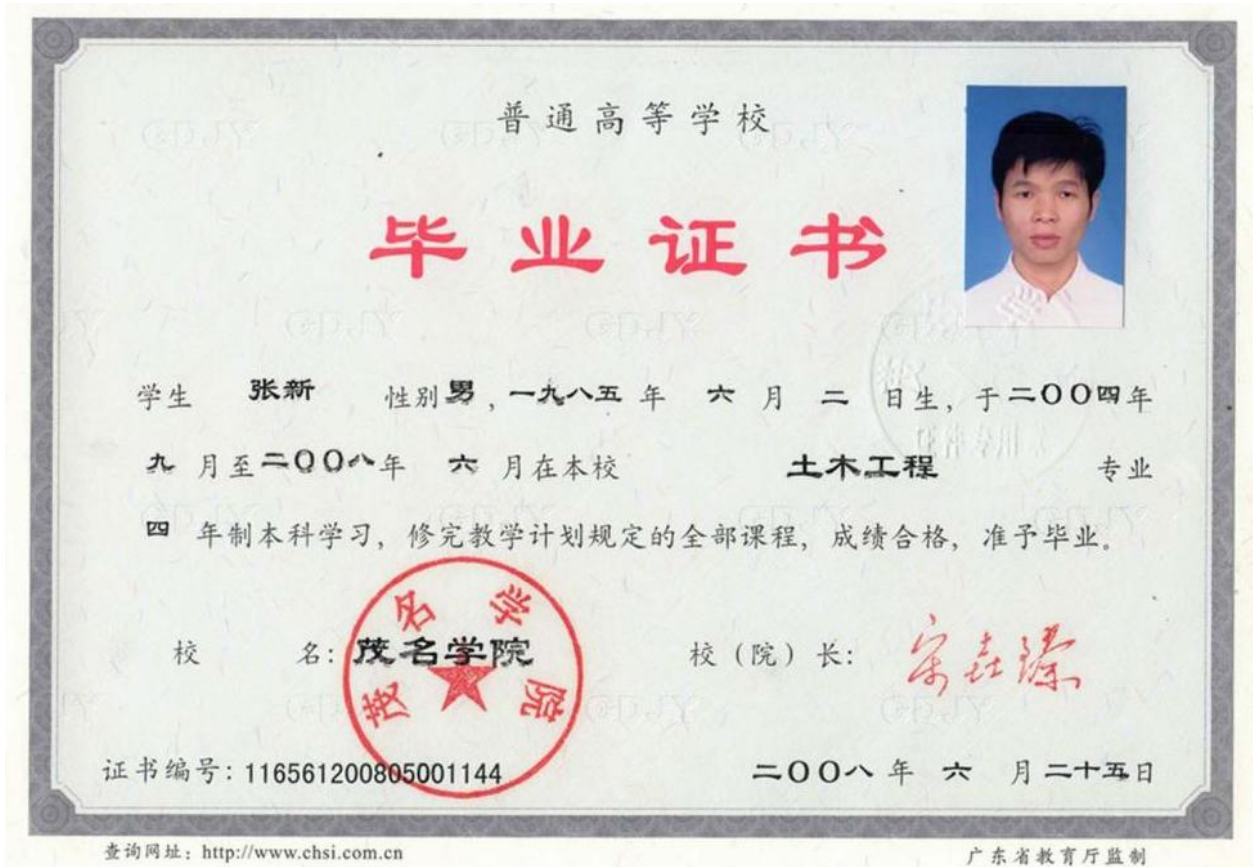 普通高等学校
毕业证书
学生 张新 性别 男，一九八五年 六 月 二 日生，于二〇〇四年
九 月至二〇〇八年 六 月在本校 土木工程 专业
四 年制本科学习，修完教学计划规定的全部课程，成绩合格，准予毕业。
茂名学院
校 名：茂名学院 校（院）长：
证书编号：116561200805001144 二〇〇八年 六 月二十五日
查询网址：http://www.chsi.com.cn 广东省教育厅监制